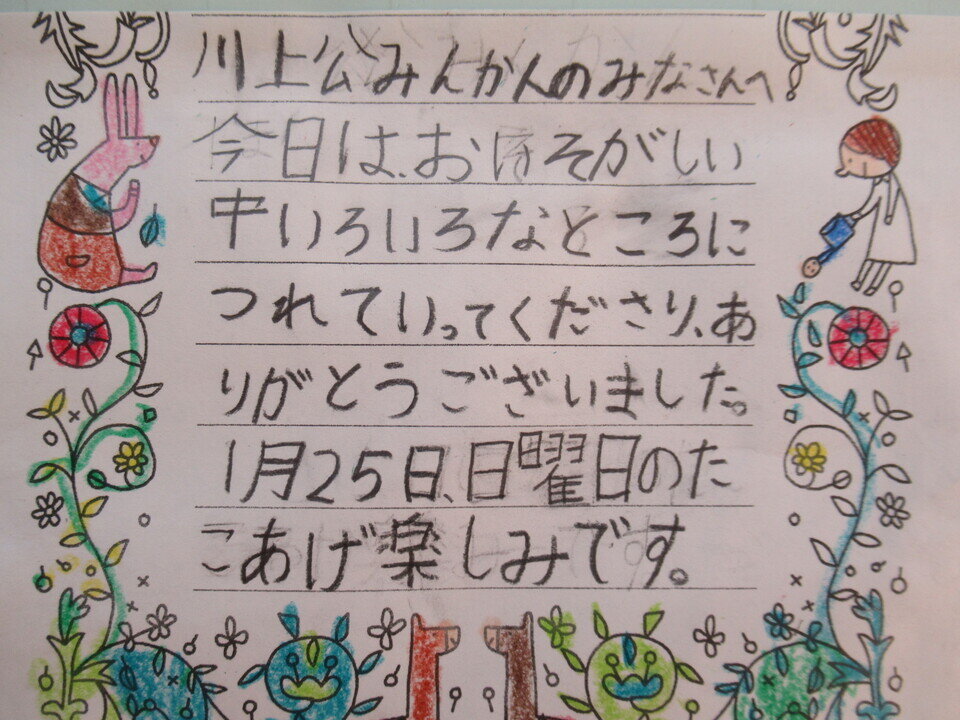 川上公みんかんのみなさんへ
今日は、おいそがしい
中いろいろなところに
つれていってくださり、あ
りがとうございました。
1月25日、日曜日のた
こあげ楽しみです。